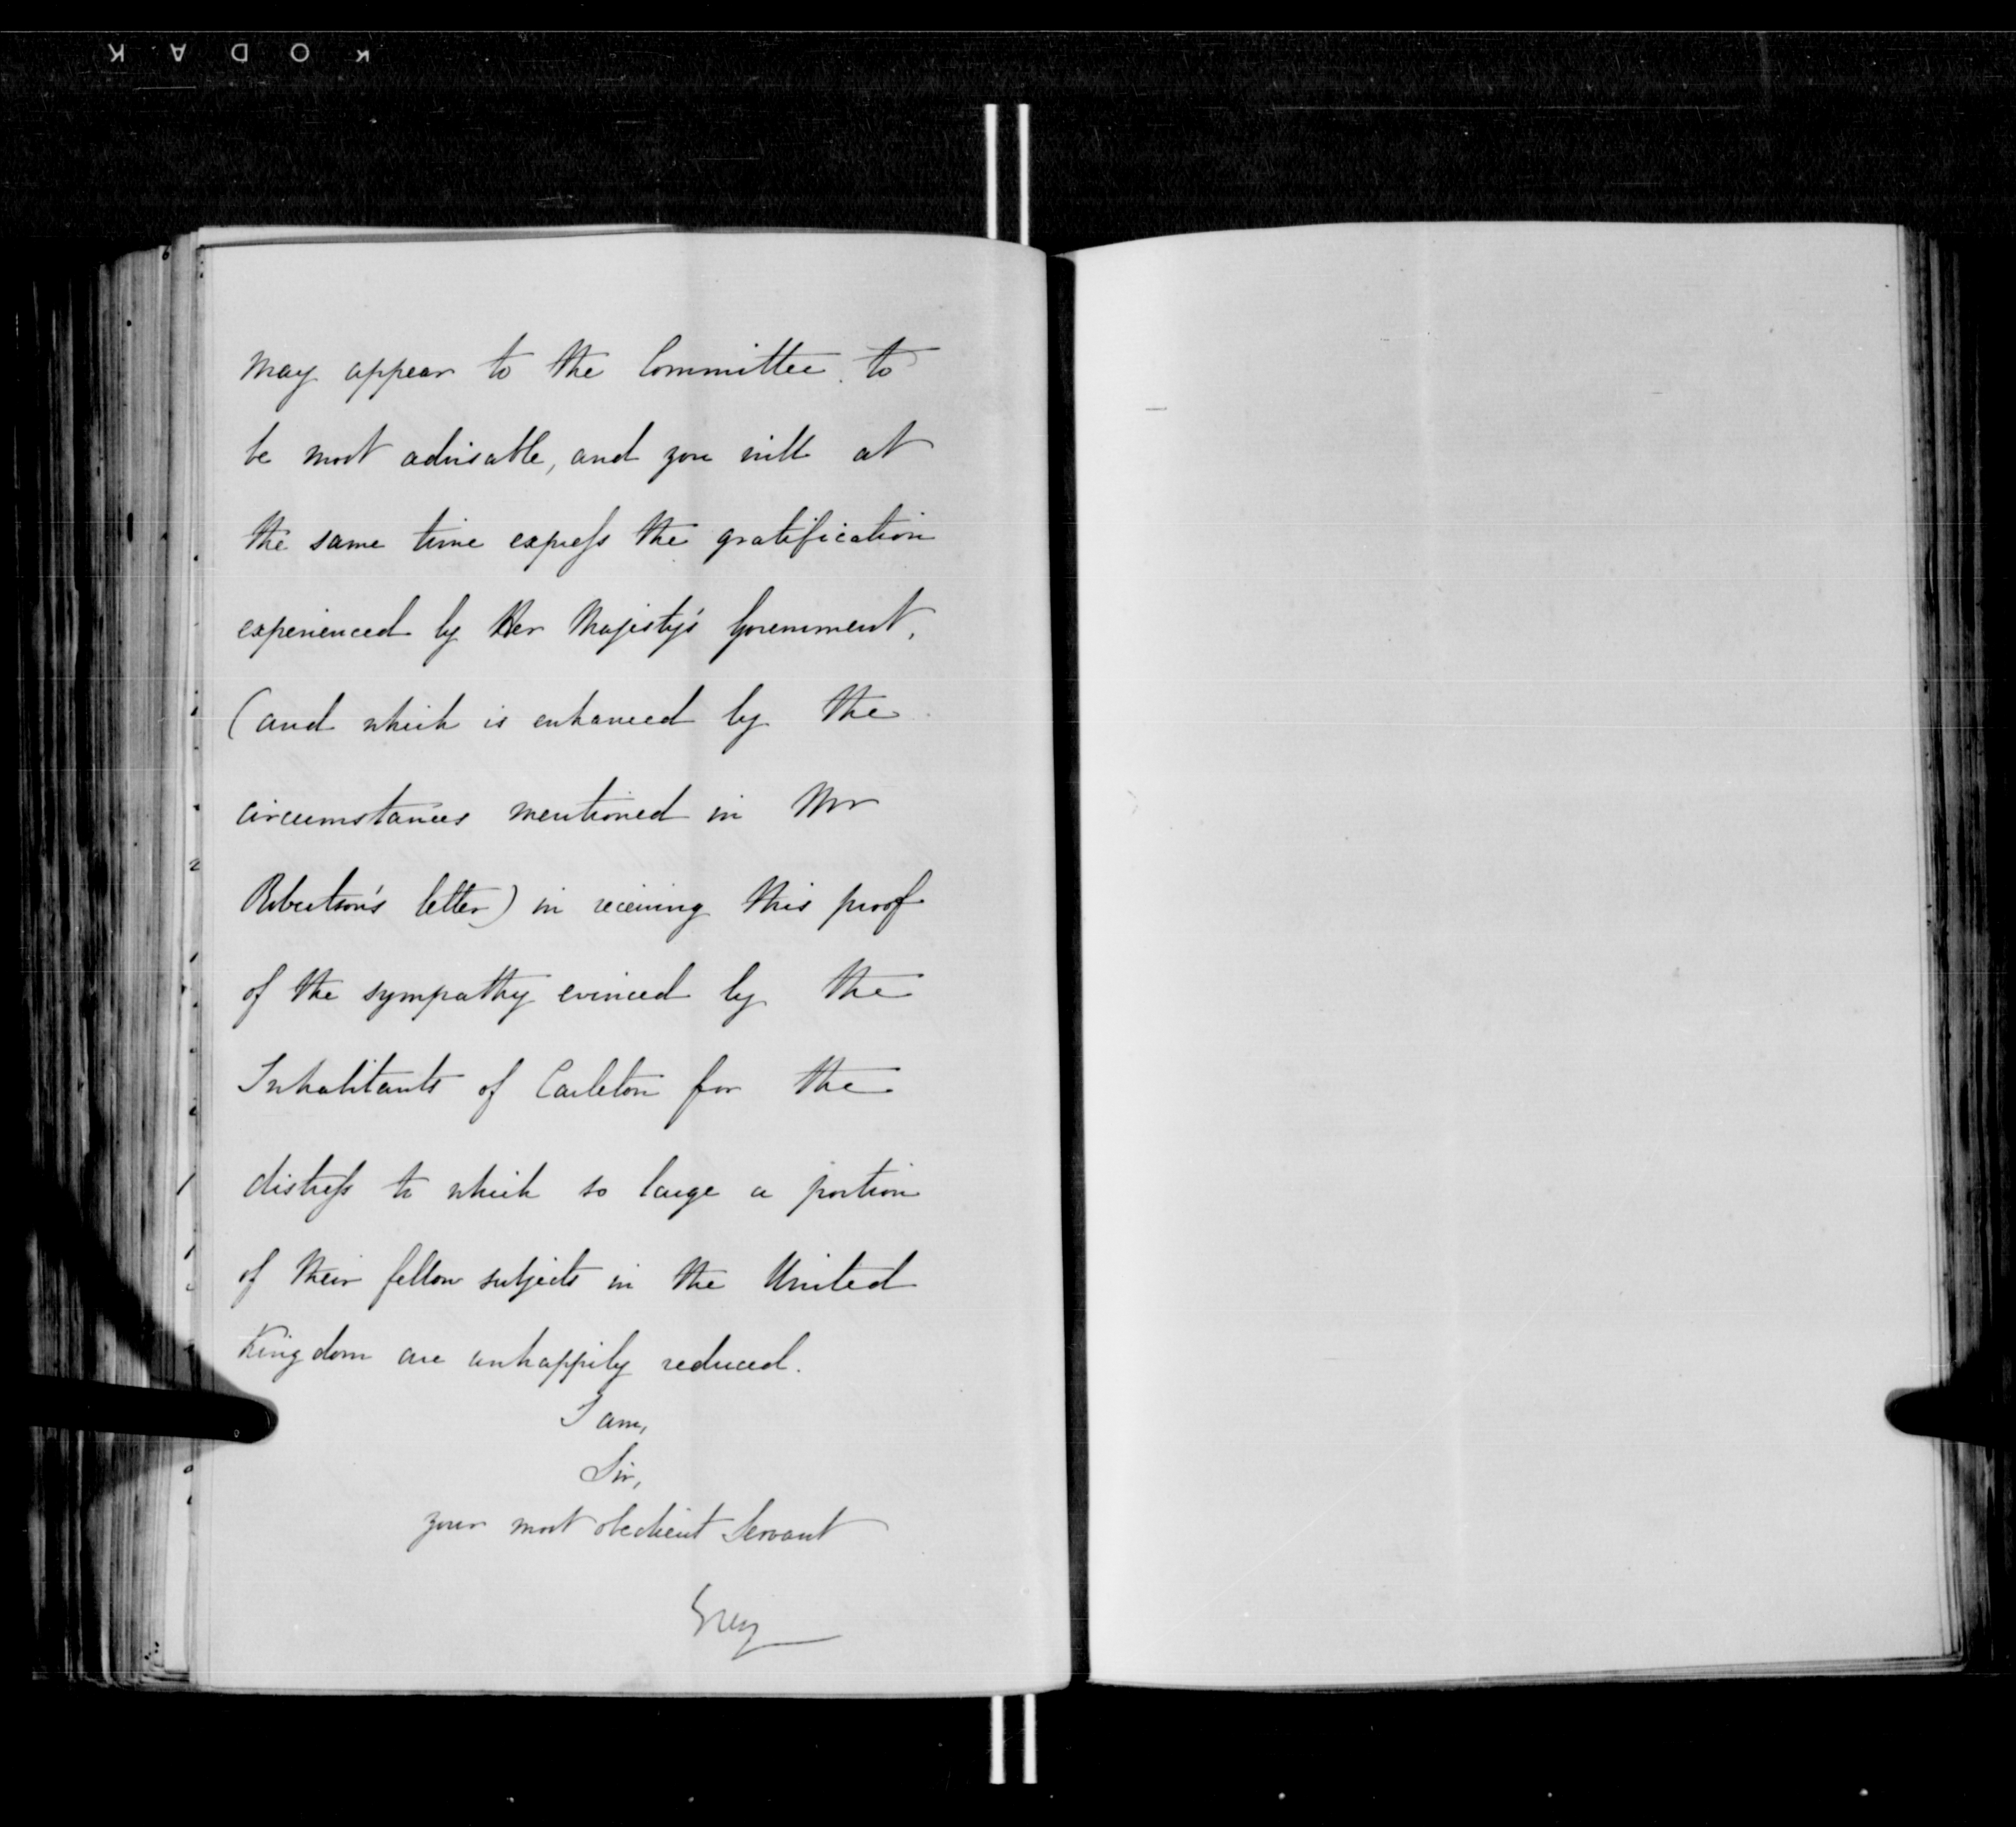 KODAK
may appear to the Committee to
be most advisable, and you will at
the same time express the gratification
experienced by Her Majesty's Government,
(and which is enhanced by the
circumstances mentioned in Mr
Robertson's letter) in receiving this proof
of the sympathy evinced by the
Inhabitants of Carleton for the
distress to which so large a portion
of their fellow subjects in the United
Kingdom are unhappily reduced.
I am,
Sir,
your most obedient Servant
Grey